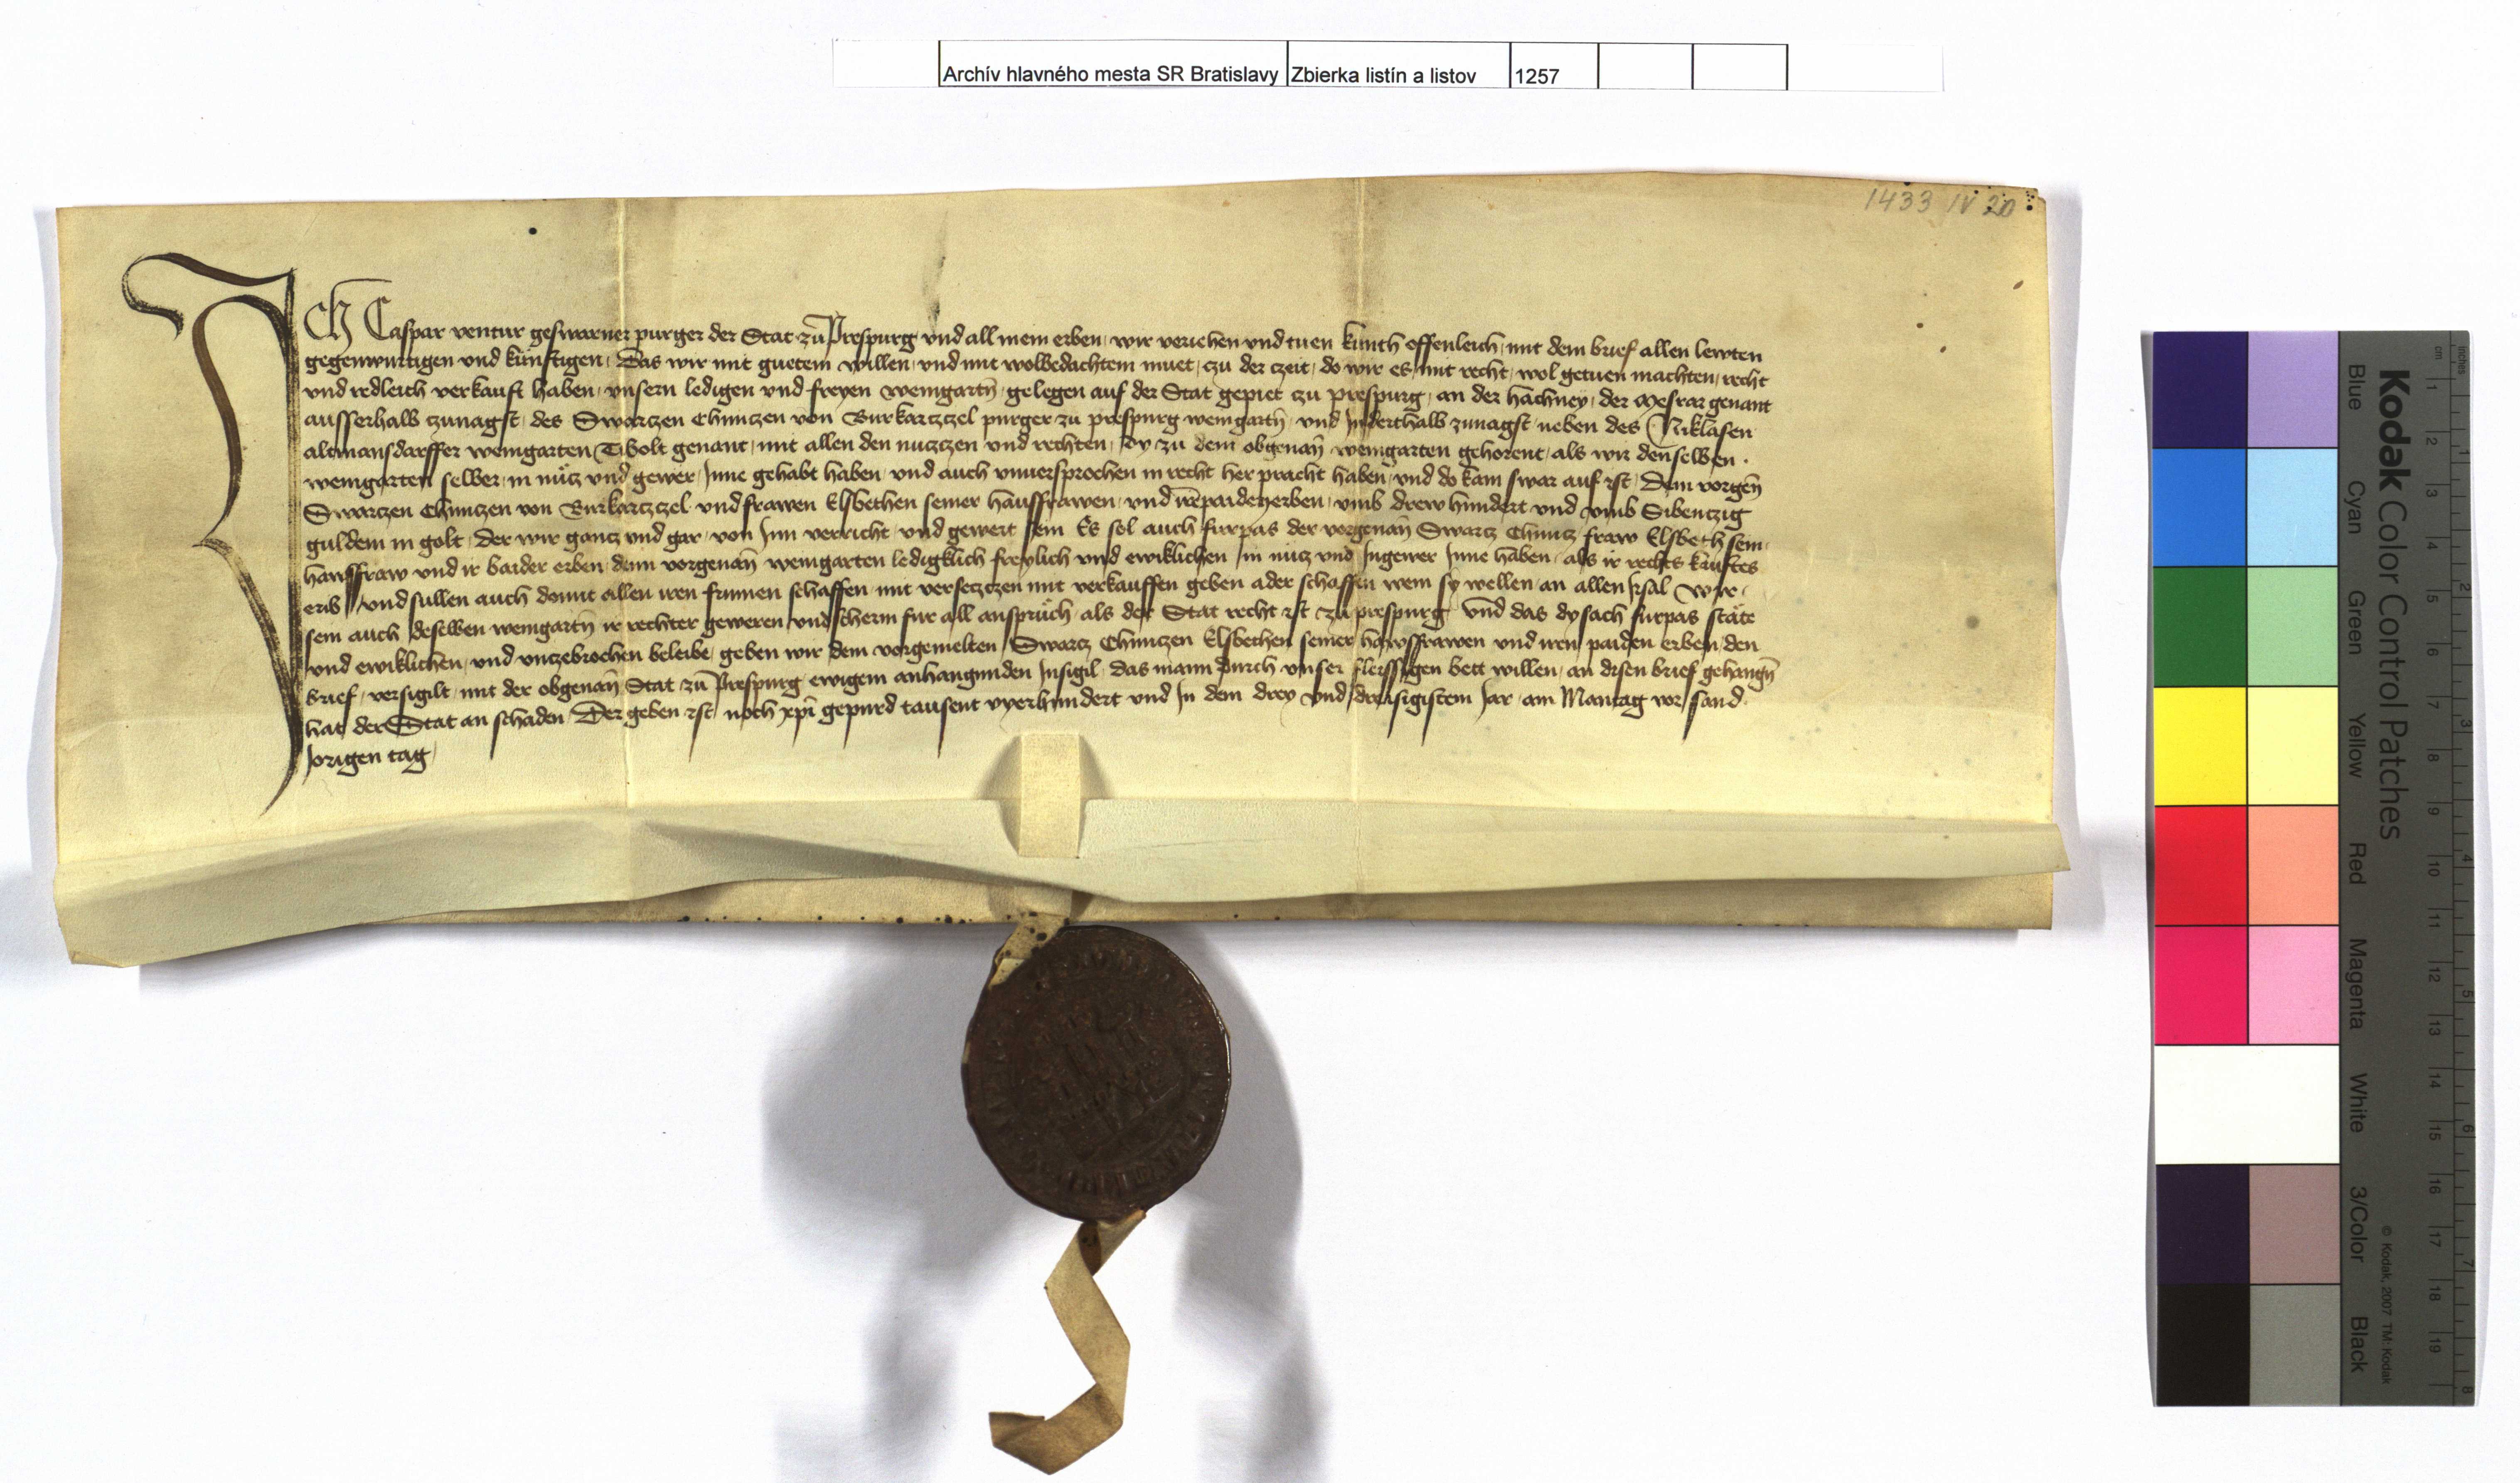 Archív hlavného mesta SR Bratislavy Zbierka listín a listov 1257
1433 IV 20
Ich Caspar ventur geswarner purger der Stat zu Prespurg vnd all mein erben wir veriehen vnd tuen kunth offenleich mit dem brief allen lewten
gegenwurtigen vnd kunftigen Das wir mit guetem willen vnd mit wolbedachtem muet czu der czeit do wir es mit recht wol getuen machten recht
vnd redleich verkauft haben vnsern ledigen vnd freyen weingartn̄ gelegen auf der Stat gepiet zu prespurg an der hachney der Mesrar genant
ausserhalb zunagst des Swartzen Chuntzen von Burkartzzel purger zu prespurg weingartn̄ vnd Inderthalb zunagst neben des Niklasen
altmansdarffer weingarten Tibolt genant mit allen den nutzzen vnd rechten dy zu dem obgenan̄ weingarten gehorent als wir denselben
weingarten selber in nutz vnd gewer Inne gehabt haben vnd auch vnuersprochen in recht her pracht haben vnd do kain swar auf ist Dem vorgen̄
Swartzen Chuntzen von Burkartzzel vnd frawen Elsbethen seiner hausfrawen vnd ir paider erben vmb drew hundert vnd vmb Sibentzig
guldein in golt der wir gantz vnd gar von Inn verricht vnd gewert sein Es sol auch furpas der vorgenan̄ Swartz Chuntz fraw Elsbeth sein
hawsfraw vnd ir baider erben denn vorgenan̄ weingarten ledigklich freylich vnd ewiklichen In nutz vnd Ingewer Inne haben als ir rechts kauftes
erib vnd sullen auch domit allen iren frumen schaffen mit versetzen mit verkauffen geben ader schaffen wem sy wellen an allen Irsal Wir
sein auch deselben weingartn̄ ir rechter geweren vnd scherm fur all anspruch als der Stat recht ist zu prespurg vnd das dy sach furpas stäte
vnd ewiklichen vnd vntzebrochen beleibe geben wir dem vorgemelten Swartz Chuntzen Elsbethen seiner hawsfrawen vnd iren paiden erben den
brief versigilt mit der obgenan̄ Stat zu Prespurg ewigem anhangunden Insigil das mann durch vnser fleissigen bett willen an disen brief gehangn̄
hat der Stat an schaden Der geben ist noch xpī gepurd tausent vyerhundert vnd In dem drey vnd dreissigistem Jar am Mantag vor sand
Jorigen tag
Kodak Color Control Patches
Blue Cyan Green Yellow Red Magenta White 3/Color Black
© Kodak, 2007 TM: Kodak
inches 1 2 3 4 5 6 7 8
cm 1 2 3 4 5 6 7 8 9 10 11 12 13 14 15 16 17 18 19